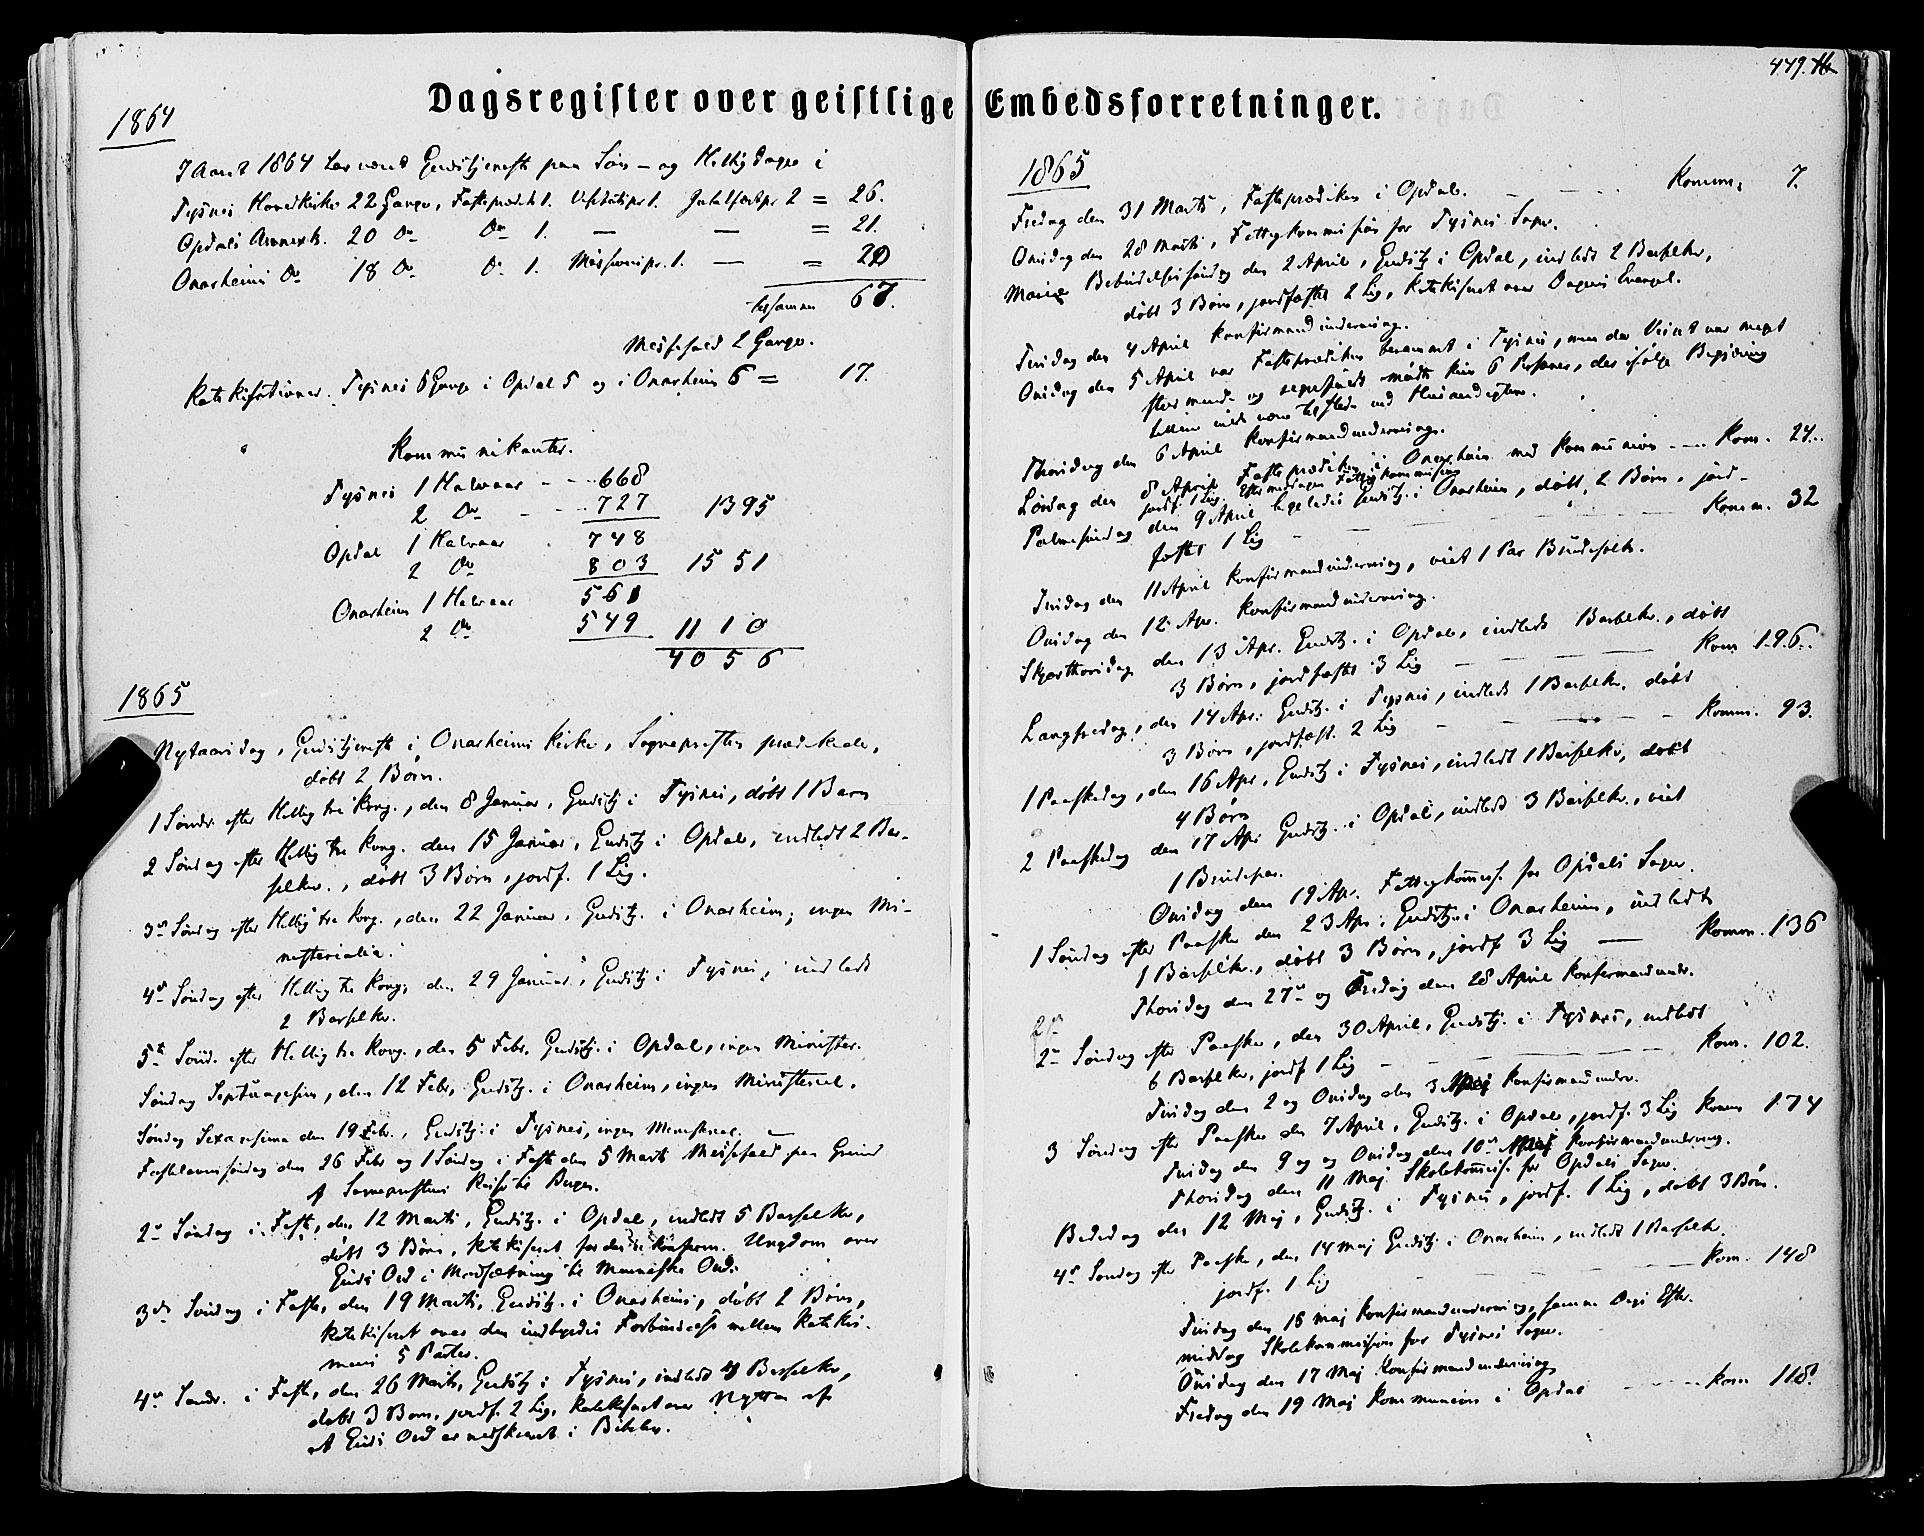 Dagsregister over geistlige Embedsforretninger.
449.
1864
I Aaret 1864 har været Gudstjeneste paa Søn- og Helligdage i
Tysnes Hovedkirke 22 Gange, Fastepræd. 1. Visitatspr. 1. 2 = 26.
Opdals Annexk. 20 Do Do 1. — — = 21.
Onarheims Do 18 Do Do 1. Missionspr. 1. — = 20
tilsammen 67.
Messefald 2 Gange.
Katekisationer. Tysnes 6 Gange i Opdal 5 og i Onarheim 6 = 17.
Kommunikanter.
Tysnes 1 Halvaar - - - 668
2 Do - - - 727 1395
Opdal 1 Halvaar 748
2 Do 803 1551
Onarheim 1 Halvaar 561
2 Do 549 1110
4056
1865
Nytaarsdag, Gudstjeneste i Onarheims Kirke, Sognepresten prædikede,
døbt 2 Børn.
1 Søndr. efter Hellig tre Kong., den 8 Januar, Gudstj. i Tysnes, døbt 1 Barn
2 Søndag efter Hellig tre Kong. den 15 Januar, Gudstj. i Opdal, indledt 2 Bar-
selkr., døbt 3 Børn, jordf. 1 Lig.
3die Søndag efter Hellig tre Kong., den 22 Januar, Gudstj. i Onarheim; ingen Mi-
nisterialia.
4de Søndag efter Hellig tre Kong. den 29 Januar, Gudstj. i Tysnes, indledt
2 Barselkr.
5te Sønd. efter Hellig tre Kong., den 5 Febr. Gudstj. i Opdal, ingen Minister.
Søndag Septuagesima, den 12 Febr, Gudstj. i Onarheim, ingen Ministerial.
Søndag Sexagesima den 19 Febr., Gudstj. i Tysnes, ingen Ministerial.
Fastelavnssøndag den 26 Febr og 1 Søndag i Faste den 5 Marts Messefald paa Grund
af Sogneprestens Reise til Bergen.
2den Søndag i Faste, den 12 Marts, Gudstj. i Opdal, indledt 5 Barselkr,
døbt 3 Børn, katekiseret for den konfirm. Ungdom over
Guds Ord i Modsætning til Menneske Ord.
3die Søndag i Faste, den 19 Marts, Gudstj. i Onarheim, døbt 2 Børn,
katekiseret over den indbyrdes Forbindelse mellem Katekis-
mens 5 Parter.
4de Søndr. i Faste, den 26 Marts, Gudstj. i Tysnes, indledt 4 Barselkr,
døbt 3 Børn, jordf. 2 Lig, katekiseret over Nytten af
at Guds Ord er nedskrevet i Bibelen.
1865
Fredag den 31 Marts, Fasteprædiken i Opdal. - - - Komm. 7.
Onsdag den 28 Marts, Fattigkommission for Tysnes Sogn.
Mariæ Bebudelsessøndag den 2 April, Gudstj. i Opdal, indledt 2 Barselkr,
døbt 3 Børn, jordfæstet 2 Lig, katekiseret over Dagens Evangel.
Tirsdag den 4 April Konfirmandundervisning.
Onsdag den 5 April var Fasteprædiken berammet i Tysnes, men da Veiret var meget
stormende og regnfuldt mødte kun 6 Personer, der ifølge Begjæring
Thorsdag den 6 April Konfirmandundervisning.
Lørdag den 8 April Fasteprædiken i Onarheim med Kommunion - - - Kom. 24.
jordf. 1 Lig. Eftermiddagen Fattigkommission
Palmesøndag den 9 April ligeledes Gudstj. i Onarheim, døbt 2 Børn, jord-
fæstet 1 Lig - - - Komm. 32
Tirsdag den 11 April Konfirmandundervisning, viet 1 Par Brudefolk.
Onsdag den 12 Apr. Konfirmandundervisning.
Skjærthorsdag den 13 Apr. Gudstj. i Opdal, indledt Barselkr., døbt
3 Børn, jordfæstet 3 Lig - - - Kom 196.
Langfredag, den 14 Apr. Gudstj. i Tysnes, indledt 1 Barselkr. døbt
3 Børn, jordfæst. 2 Lig - - - Komm. 93.
1 Paaskedag, den 16 Apr. Gudstj. i Tysnes, indledt 1 Barselkr, døbt
4 Børn
2 Paaskedag den 17 Apr Gudstj. i Opdal, indledt 3 Barselkr., viet
1 Brudepar.
Onsdag den 19 Apr. Fattigkommis. for Opdals Sogn.
1 Søndag efter Paaske den 23 Apr. Gudstj. i Onarheim, indledt
1 Barselkr., døbt 3 Børn, jordf 3 Lig — Komm. 136
Thorsdag den 27de og Fredag den 28 April Konfirmandundr.
2den Søndag efter Paaske, den 30 April, Gudstj. i Tysnes, indledt
6 Barselkr, jordf 1 Lig - - - Kom. 102.
Tirsdag den 2 og Onsdag den 3 Maj Konfirmandundr.
3 Søndag efter Paaske den 7 April, Gudstj. i Opdal, jordf. 3 Lig Komm 174
Tirsdag den 9 og og Onsdag den 10de Maj Konfirmandundervisng.
Thorsdag den 11 Maj Skolekommis. for Opdals Sogn.
Bededag den 12 Maj, Gudstj. i Tysnes, jordf. 1 Lig, døbt 3 Børn.
4de Søndag efter Paaske, den 14 Maj Gudstj. i Onarheim, indledt 1 Barselkr
jordf. 1 Lig - - - Kom. 148
Tirsdag den 16 Maj Konfirmandundervisning, samme Dags Efter-
middag Skolekommission for Tysnes Sogn.
Onsdag den 17 Maj Konfirmandundervisning
Fredag den 19 Maj Kommunion i Opdal - - - Kom 118.